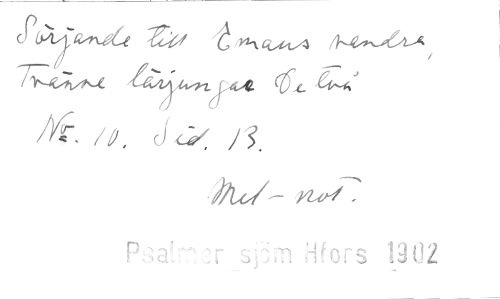 Sörjande till Emaus vandra,
Tvänne lärjungar De två
No. 10. Sid. 13.
Mel-not.
Psalmer sjöm Hfors 1902